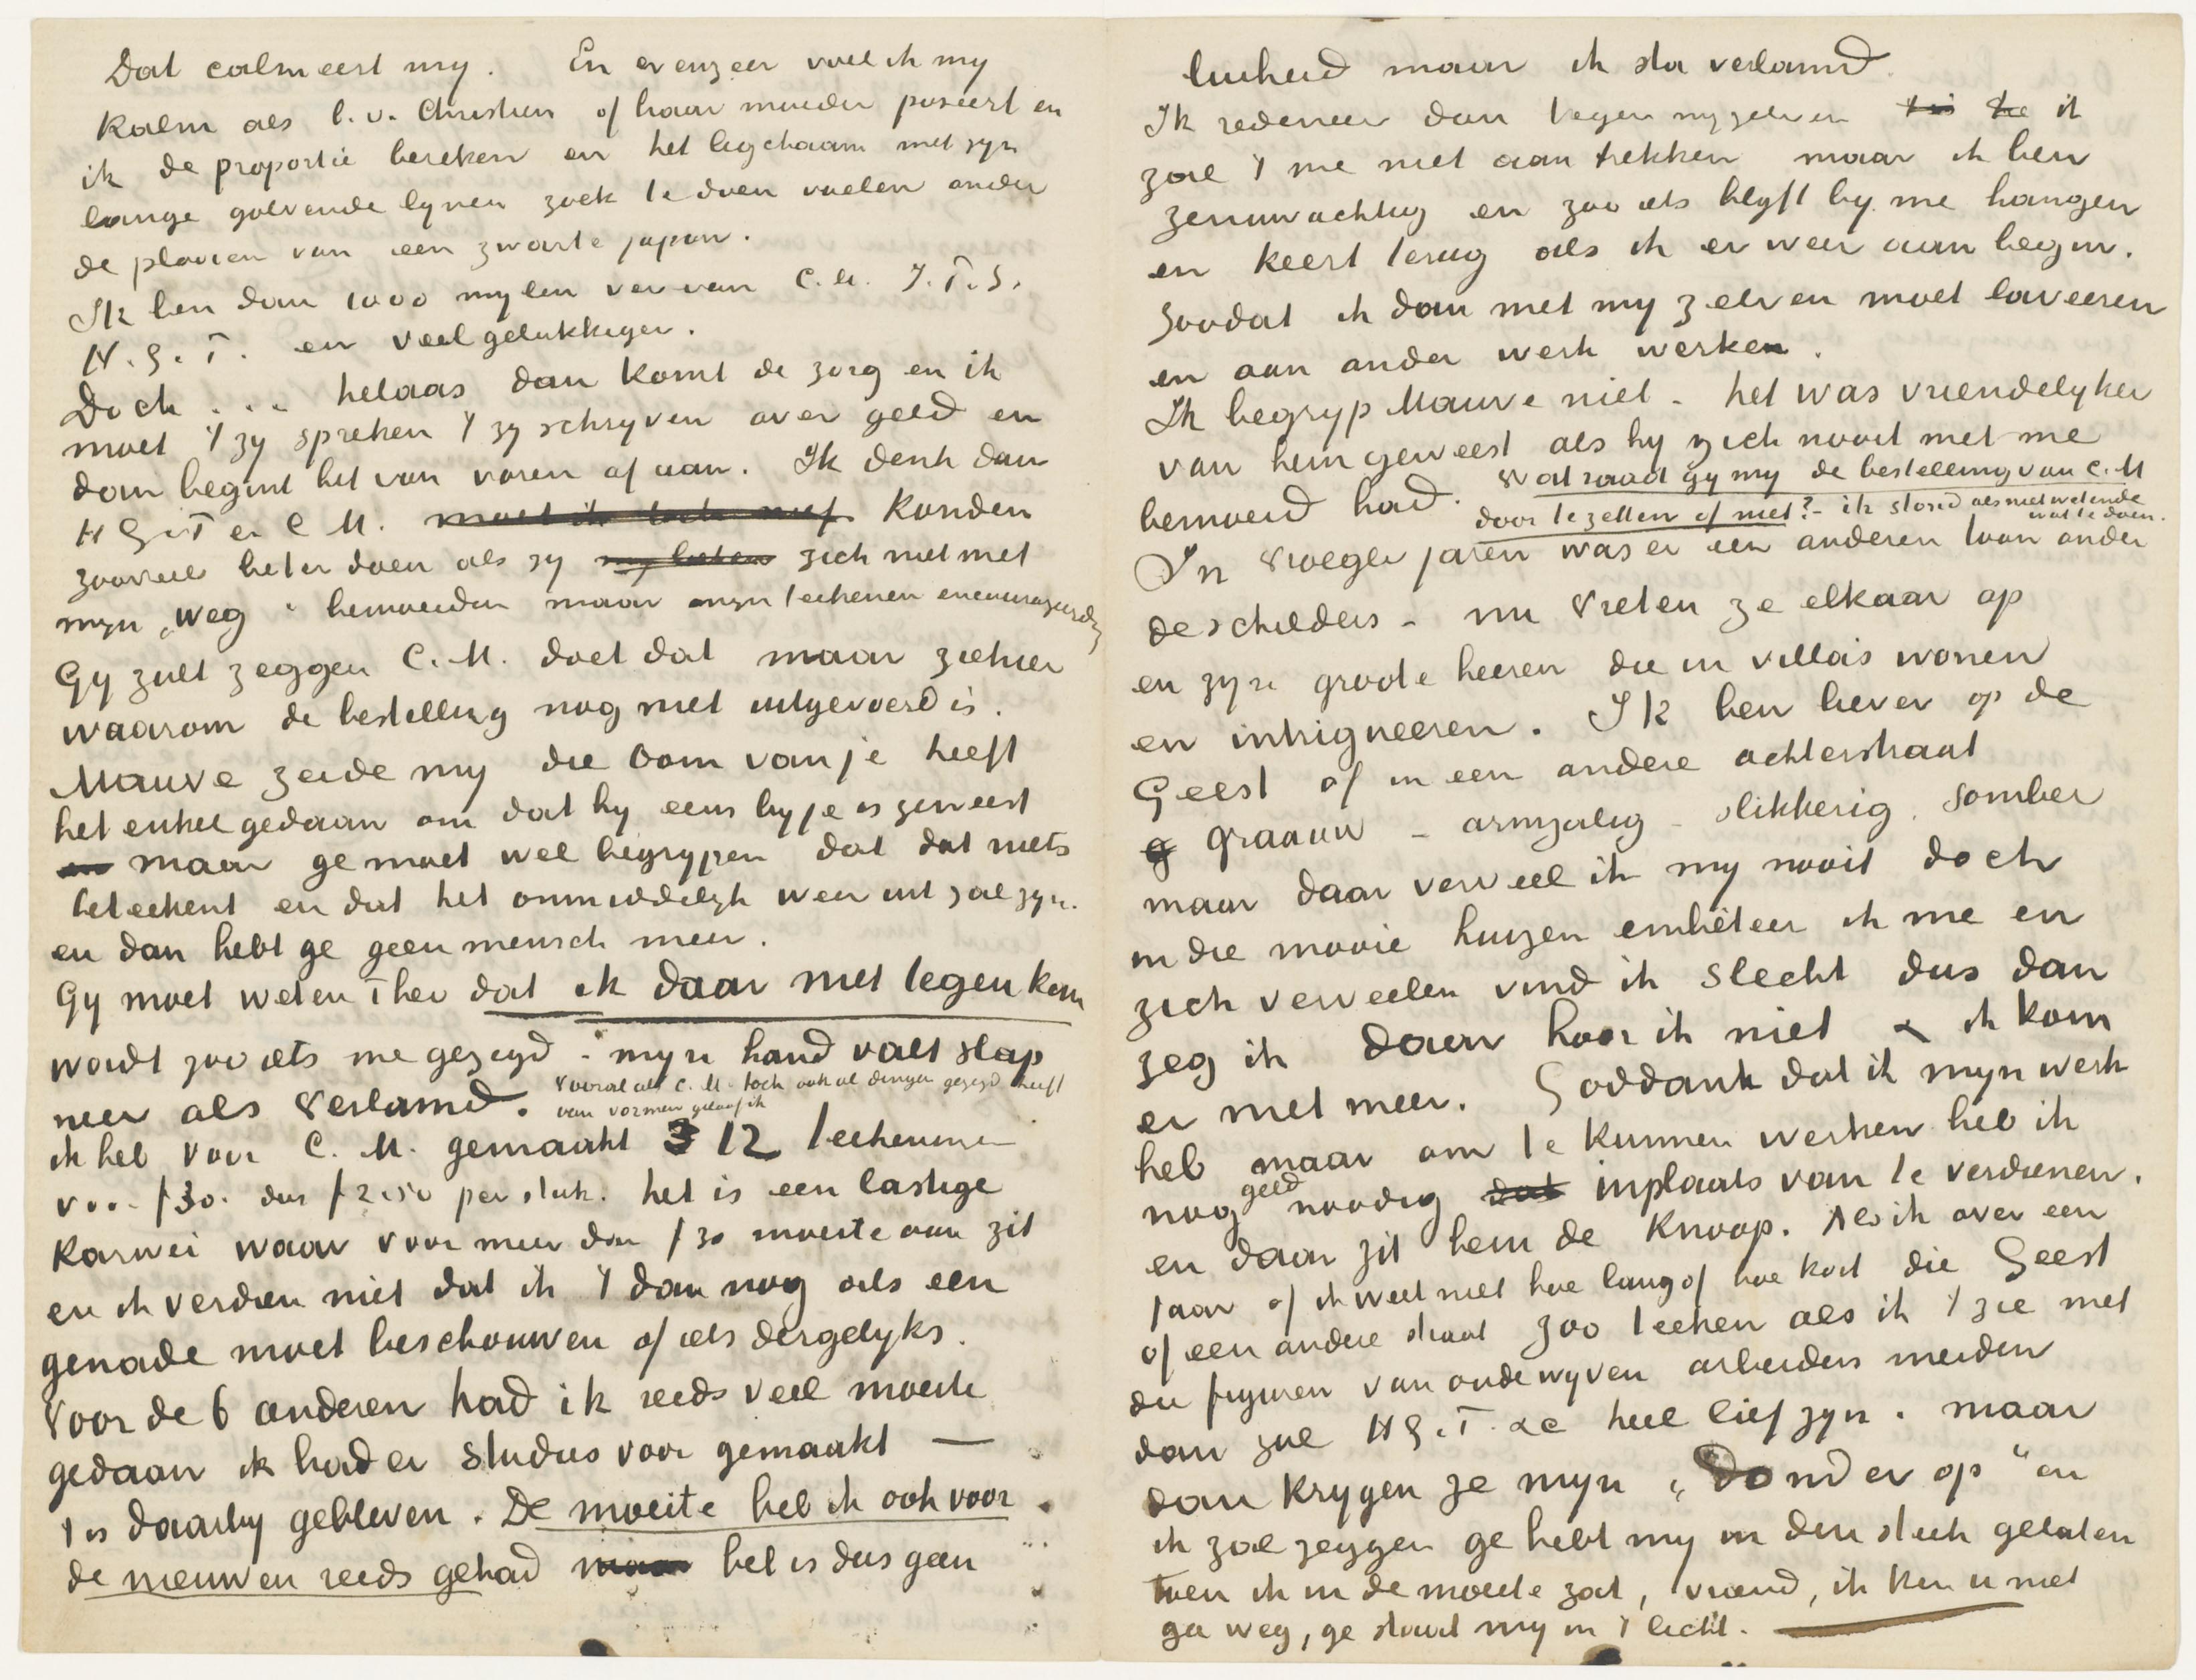 Dat calmeert my. En evenzeer voel ik my
kalm als b.v. Christien of haar moeder poseert en
ik de proportie bereken en het ligchaam met zyn
lange golvende lynen zoek te doen voelen onder
de plooien van een zwarte japon.
Ik ben dan 1000 mylen ver van C.M. J.T.S.
H.G.T. en veel gelukkiger.
Doch ... helaas dan komt de zorg en ik
moet 't zy spreken 't zy schryven over geld en
dan begint het van voren af aan. Ik denk dan
HGT en C M. moet ik toch nief konden
zooveel beter doen als zy my laten zich niet met
myn „weg“ bemoeiden maar myn teekenen encourageerden
Gy zult zeggen C.M. doet dat maar ziehier
waarom de bestelling nog niet uitgevoerd is.
Mauve zeide my die Oom van je heeft
het enkel gedaan om dat hy eens by je is geweest
en maar ge moet wel begrypen dat dat niets
beteekent en dat het onmiddelyk weer uit zal zyn.
en dan hebt ge geen mensch meer.
Gy moet weten Theo dat ik daar niet tegen kan
wordt zoo iets me gezegd – myn hand valt slap
neer als verlamd. Vooral als C.M. toch ook al dingen gezegd heeft
van vormen geloof ik
ik heb voor C.M. gemaakt 3 12 teekeningen
voor f30. dus f 2.50 per stuk. het is een lastige
karwei waar voor meer dan f 30 moeite aan zit
en ik verdien niet dat ik 't dan nog als een
genade moet beschouwen of iets dergelyks.
Voor de 6 anderen had ik reeds veel moeite
gedaan ik had er studies voor gemaakt —
't is daarby gebleven. De moeite heb ik ook voor
de nieuwen reeds gehad maar het is dus geen
luiheid maar ik sta verlamd.
Ik redeneer dan tegen myzelven ik
zal 't me niet aan trekken maar ik ben
zenuwachtig en zoo iets blyft by me hangen
en keert terug als ik er weer aan begin.
Zoodat ik dan met my zelven moet laveeren
en aan ander werk werken.
Ik begryp Mauve niet – het was vriendelyker
van hem geweest als hy zich nooit met me
bemoeid had. Wat raadt gy my de bestelling van C.M
door te zetten of niet? – ik stond als niet wetende
wat te doen.
In vroeger jaren was er een anderen toon onder
de schilders – nu vreten ze elkaar op
en zyn groote heeren die in villa's wonen
en intrigueeren. Ik ben liever op de
Geest of in een andere achterstraat
g graauw – armzalig – slikkerig, somber
maar daar verveel ik my nooit doch
in die mooie huizen embêteer ik me en
zich vervelen vind ik slecht dus dan
zeg ik daar hoor ik niet & ik kom
er niet meer. Goddank dat ik myn werk
heb maar om te kunnen werken heb ik
nog geld noodig dat inplaats van te verdienen.
en daar zit hem de knoop. Als ik over een
jaar of ik weet niet hoe lang of hoe kort die Geest
of een andere straat zoo teeken als ik 't zie met
die figuren van oude wyven arbeiders meiden
dan zal HGT &c heel lief zyn. maar
dan krygen ze myn „donder op“ en
ik zal zeggen ge hebt my in den steek gelaten
toen ik in de moeite zat, vriend, ik ken u niet
ga weg, ge staat my in 't licht. —